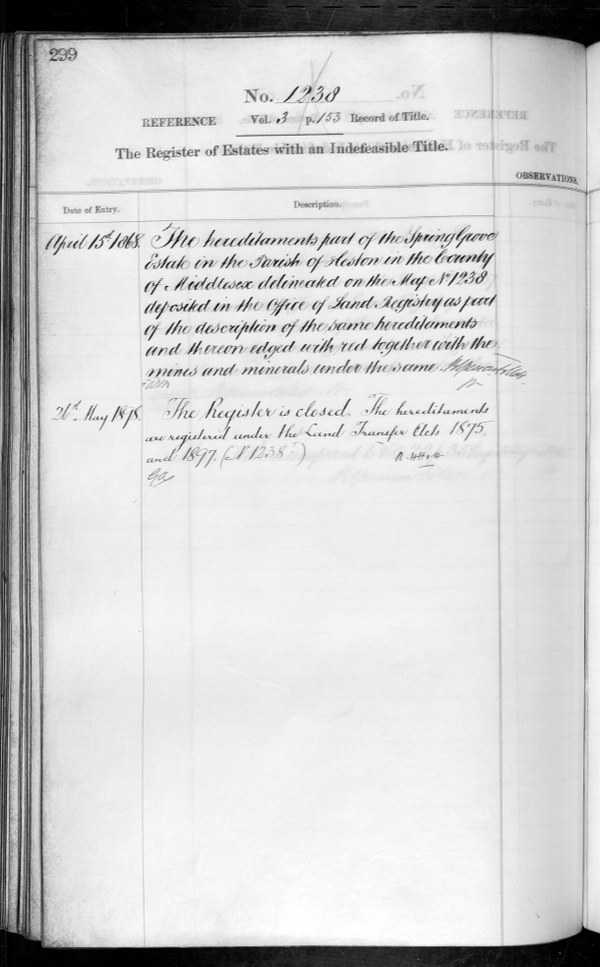 299
No. 1238
REFERENCE Vol. 3 p. 153 Record of Title.
The Register of Estates with an Indefeasible Title.
OBSERVATIONS.
Date of Entry. Description.
April 15th 1868. The hereditaments part of the Spring Grove
Estate in the Parish of Heston in the County
of Middlesex delineated on the Map No 1238
deposited in the Office of Land Registry as part
of the description of the same hereditaments
and thereon edged with red together with the
mines and minerals under the same
26th May 1898. The Register is closed. The hereditaments
are registered under the Land Transfer Acts 1875
and 1897. (No 1238)